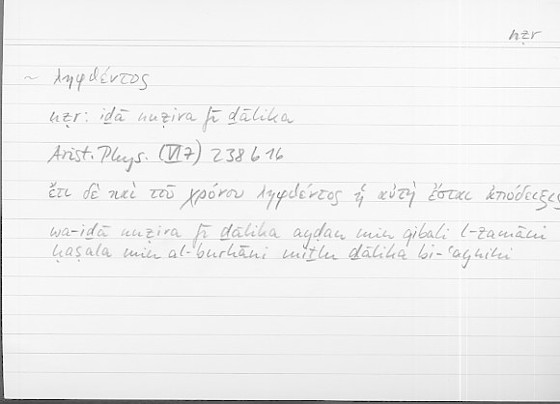 nẓr
~ ληφθέντος
nẓr: iḏā nuẓira fī ḏālika
Arist. Phys. (VI 7) 238 b 16
ἔτι δὲ καὶ τοῦ χρόνου ληφθέντος ἡ αὐτὴ ἔσται ἀπόδειξις
wa-iḏā nuẓira fī ḏālika ayḍan min qibali l-zamāni
ḥaṣala min al-burhāni miṯlu ḏālika bi-ʿaynihi